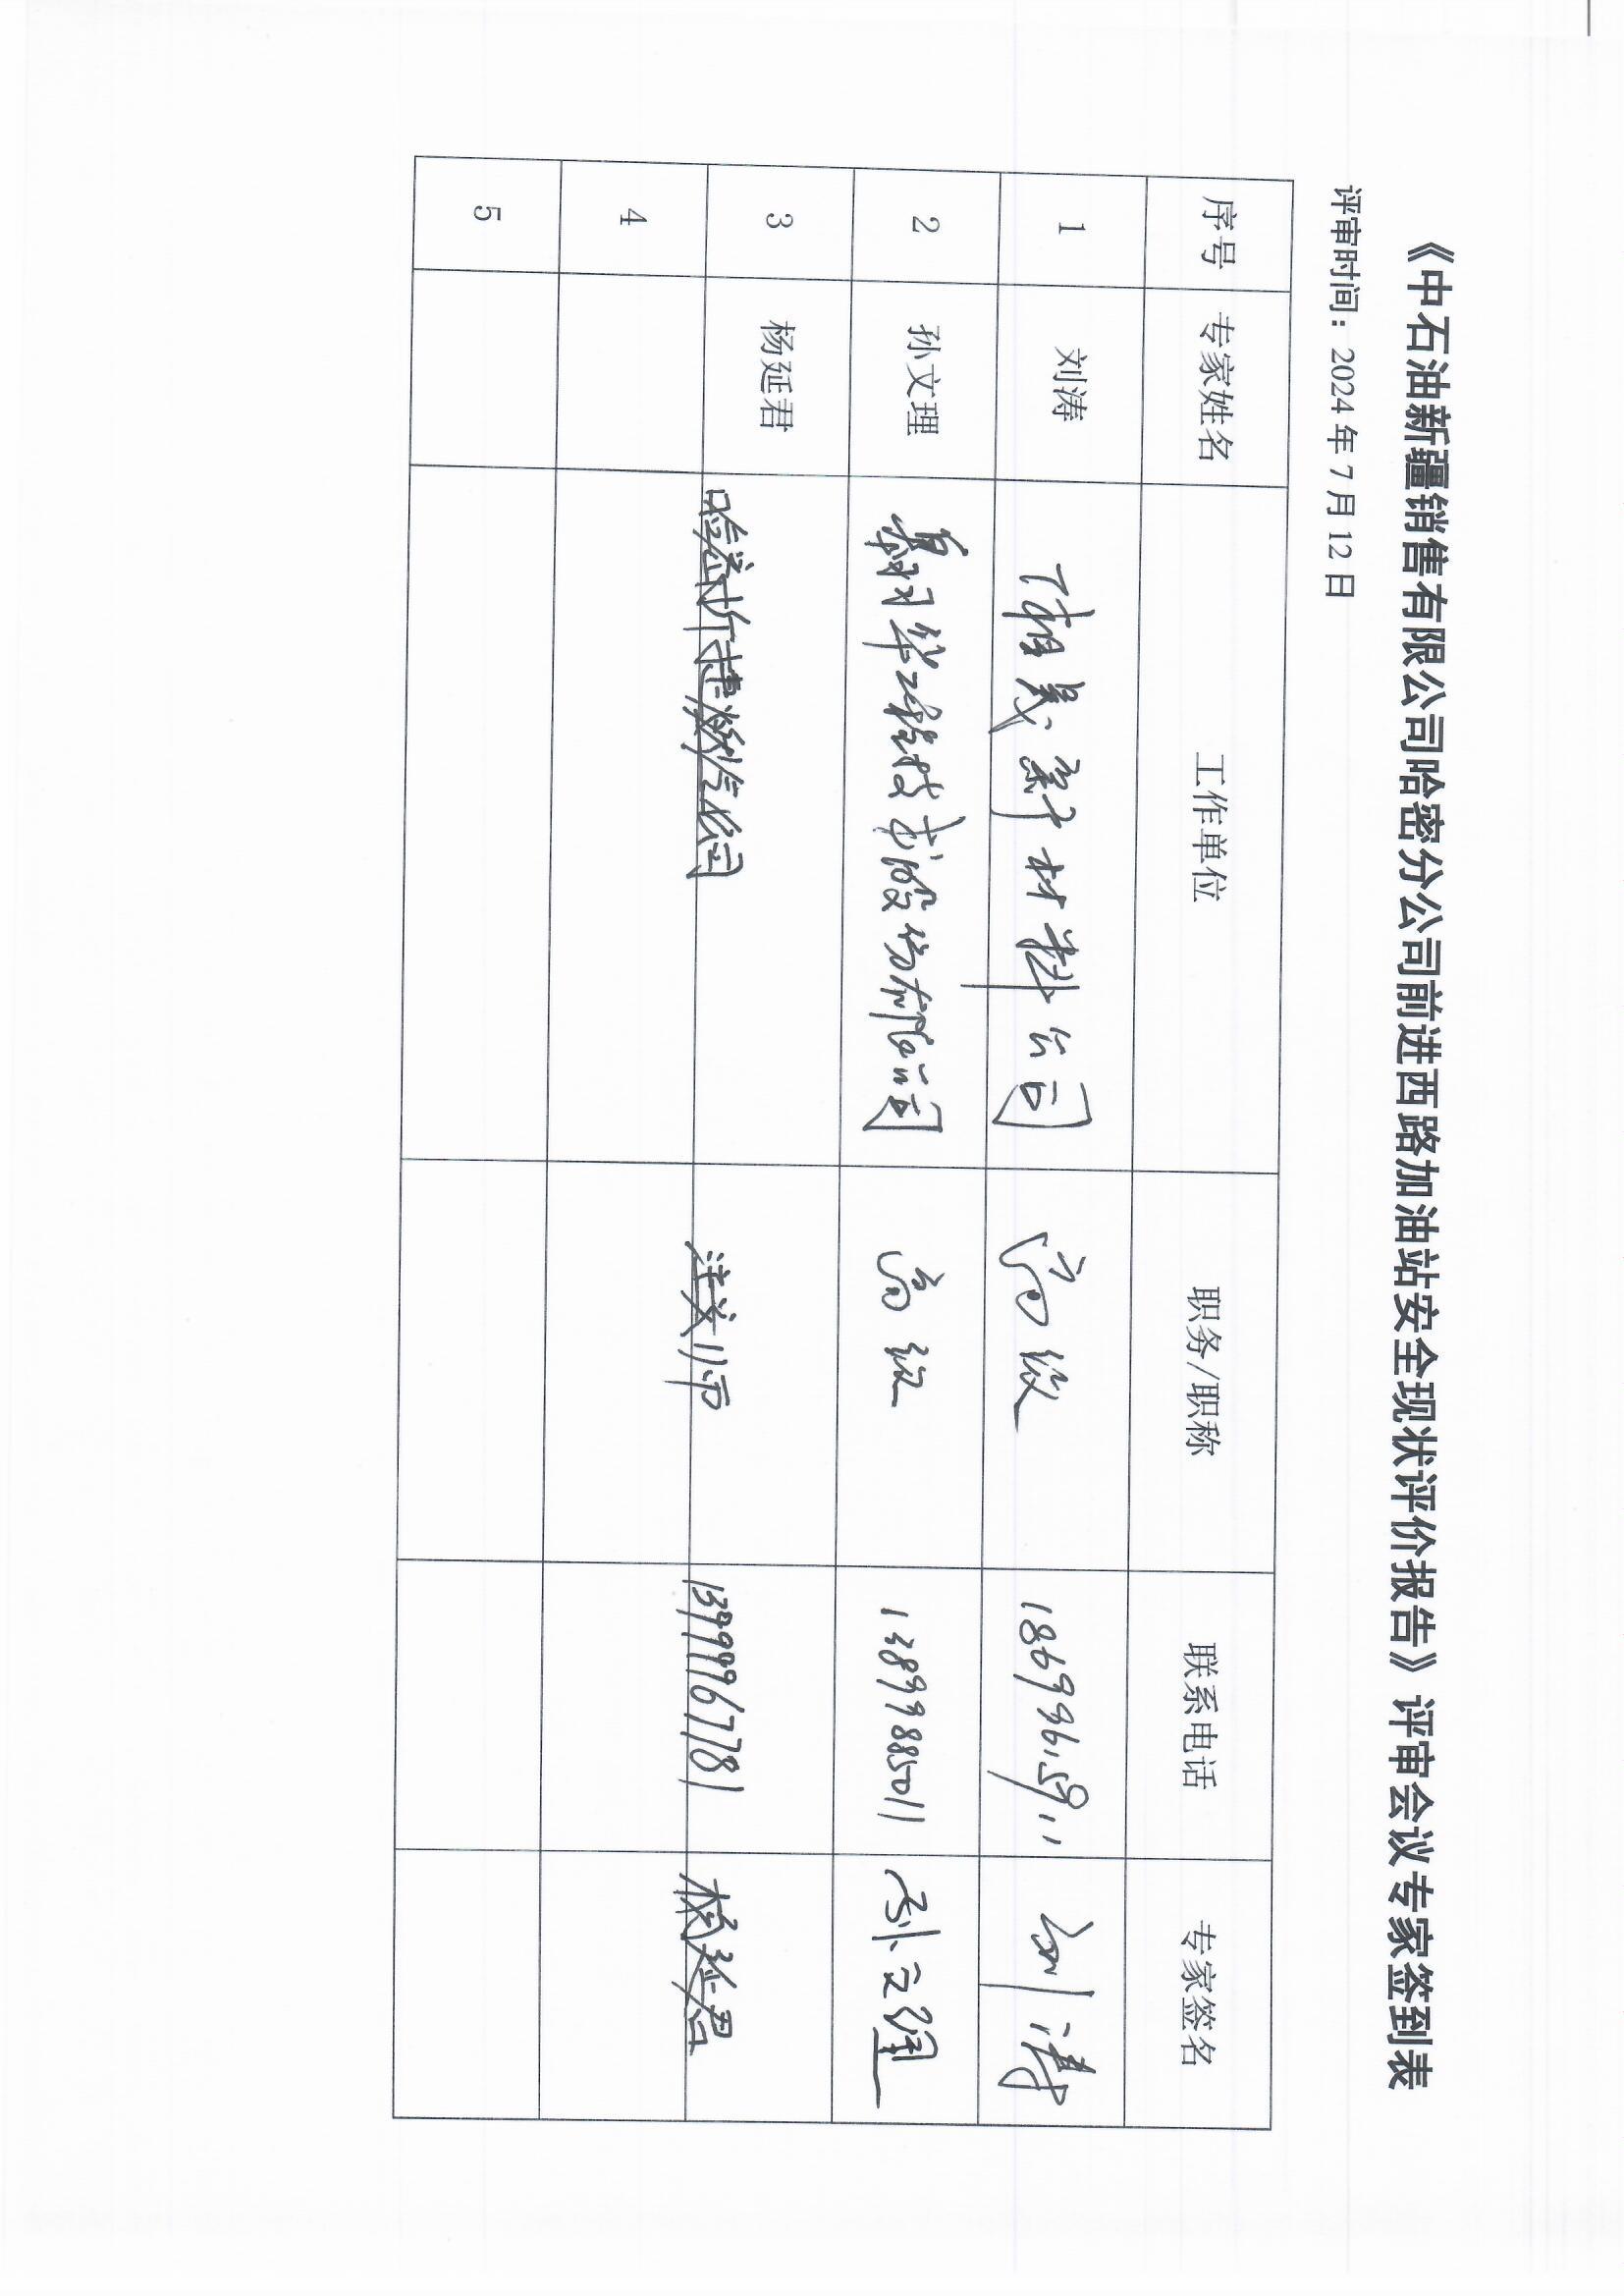 《中石油新疆销售有限公司哈密分公司前进西路加油站安全现状评价报告》评审会议专家签到表
评审时间：2024 年 7 月 12 日
序号 专家姓名 工作单位 职务/职称 联系电话 专家签名
1 刘涛 新材料公司 高级 刘涛
2 孙文理 工程技术股份有限公司 高级 13899885011 孙文理
3 杨延君 燃气公司 注安师 13999967781 杨延君
4
5